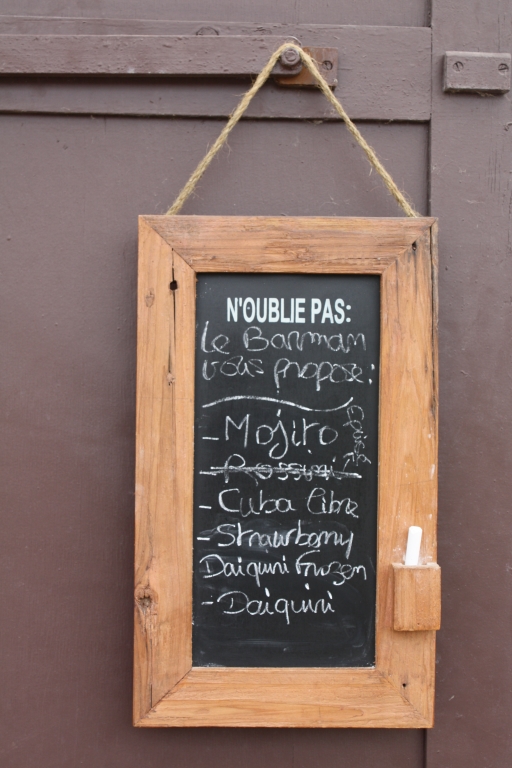 N'OUBLIE PAS:
Le Barman
vous propose:
- Mojito
- Rossini
- Cuba libre
- Strawberry
Daiquiri Frozen
- Daiquiri